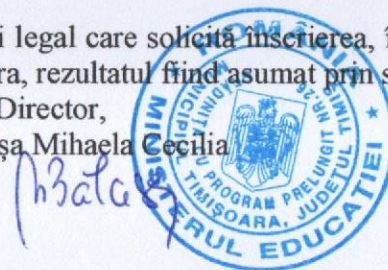 i legal care solicită înscrierea, î
ra, rezultatul fiind asumat prin s
Director,
șa Mihaela Cecilia
ROMÂNIA
MINISTERUL EDUCAȚIEI
CU PROGRAM PRELUNGIT NR. 26
MUNICIPIUL TIMIȘOARA, JUDEȚUL TIMIȘ